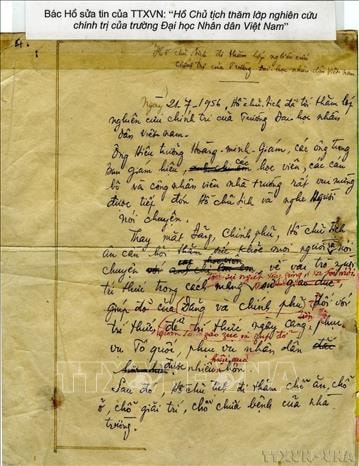 Bác Hồ sửa tin của TTXVN: "Hồ Chủ tịch thăm lớp nghiên cứu
chính trị của trường Đại học Nhân dân Việt Nam"
Hồ Chủ tịch đi thăm lớp nghiên cứu
chính trị của Trường Đại học nhân dân Việt Nam
Ngày 21-7-1956, Hồ Chủ tịch đã tới thăm lớp
nghiên cứu chính trị của Trường Đại học nhân
dân Việt nam.
Ông Hiệu trưởng Hoàng-minh-Giám, các ông trong
Ban giám hiệu, các học viên, các cán
bộ và công nhân viên nhà trường rất vui mừng
được tiếp đón Hồ Chủ tịch và nghe Người
nói chuyện.
Thay mặt Đảng, Chính phủ, Hồ Chủ tịch
ân cần hỏi thăm sức khỏe mọi người và nói
chuyện về vai trò người
trí thức trong cách mạng
giúp đỡ của Đảng và chính phủ đối với
trí thức, để trí thức ngày càng phục
vụ Tổ quốc, phục vụ nhân dân
được nhiều hơn.
Sau đó, Hồ Chủ tịch đi thăm chỗ ăn, chỗ
ở, chỗ giải trí, chỗ chữa bệnh của nhà
trường.
TTXVN-VNA
TTXVN-VNA